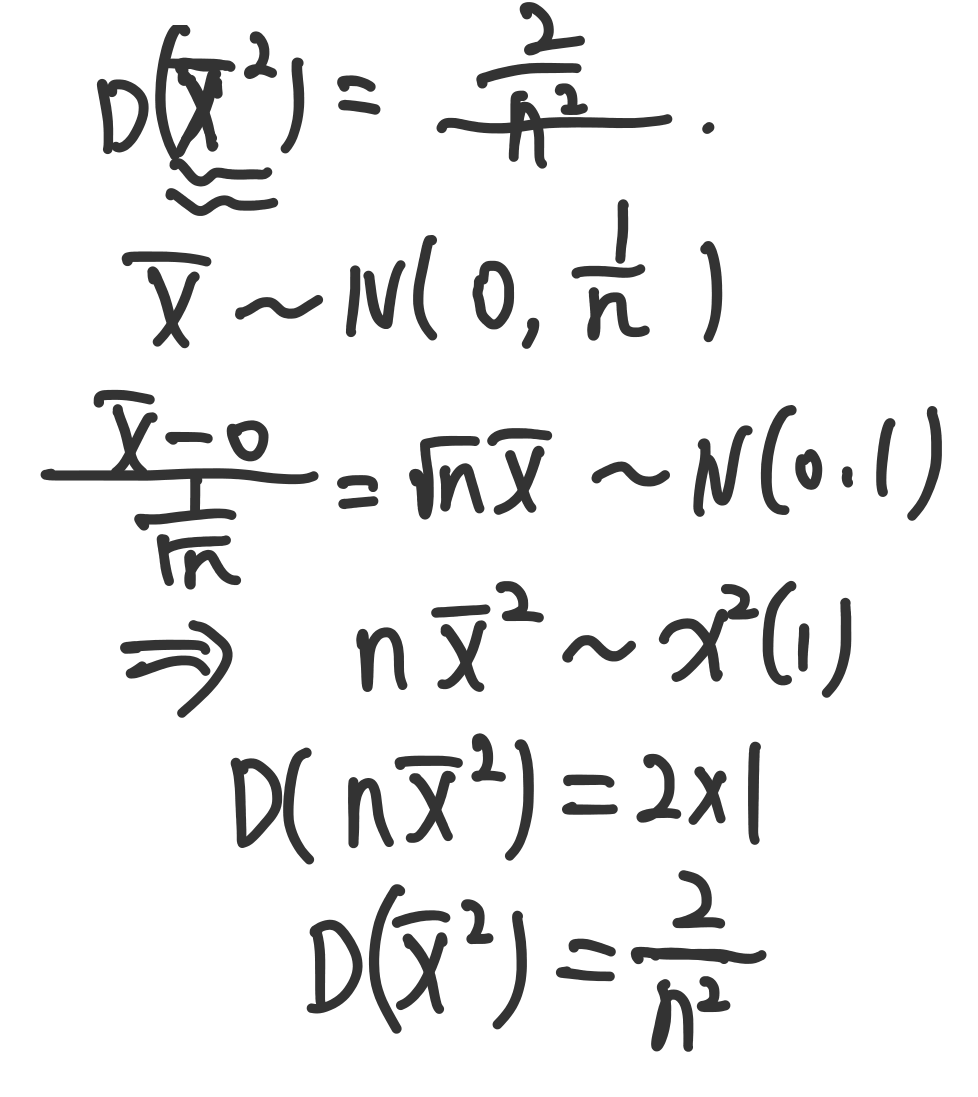 D(X̄²) = 2/n² .
X̄ ~ N(0, 1/n)
(X̄-0)/(1/√n) = √n X̄ ~ N(0.1)
⇒ nX̄² ~ χ²(1)
D(nX̄²) = 2×1
D(X̄²) = 2/n²